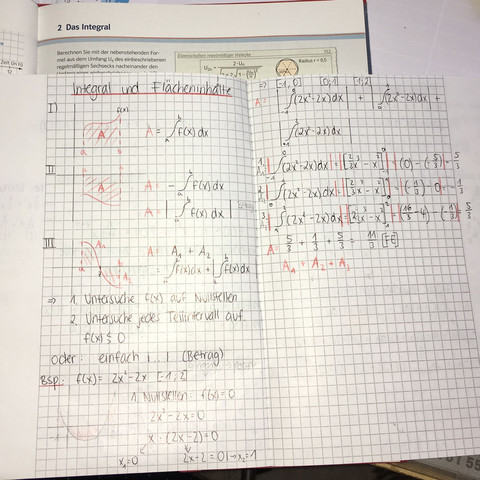 2 Das Integral
Berechnen Sie mit der nebenstehenden For-
mel aus dem Umfang Uₙ des einbeschriebenen
regelmäßigen Sechsecks nacheinander den
Eigenschaften regelmäßiger Vielecke
Radius r = 0,5
Integral und Flächeninhalte
I)
f(x)
A
a b
A = ∫ₐᵇ f(x) dx
II
A
A = - ∫ₐᵇ f(x) dx
A = | ∫ₐᵇ f(x) dx |
III
A = A₁ + A₂
= ∫ f(x) dx + | ∫ f(x) dx
⇒ 1. Untersuche f(x) auf Nullstellen
2. Untersuche jedes Teilintervall auf
f(x) ≤ 0
oder: einfach |...| (Betrag)
Bsp: f(x) = 2x² - 2x [-1, 2]
1. Nullstellen: f(x) = 0
2x² - 2x = 0
x · (2x - 2) = 0
x₁ = 0 2x - 2 = 0 | → x₂ = 1
⇒ [-1, 0] [0, 1] [1, 2]
A = | ∫ (2x² - 2x) dx | + | ∫ (2x² - 2x) dx | +
| ∫ (2x² - 2x) dx |
1. | ∫ (2x² - 2x) dx | = | [2/3 x³ - x²] | = | (0) - (-5/3) | = 5/3
2. | ∫ (2x² - 2x) dx | = | [2/3 x³ - x²] | = | (-1/3) - 0 | = 1/3
3. | ∫ (2x² - 2x) dx | = | [2/3 x³ - x²] | = | (16/3 - 4) - (-1/3) | = 5/3
A = 5/3 + 1/3 + 5/3 = 11/3 [FE]